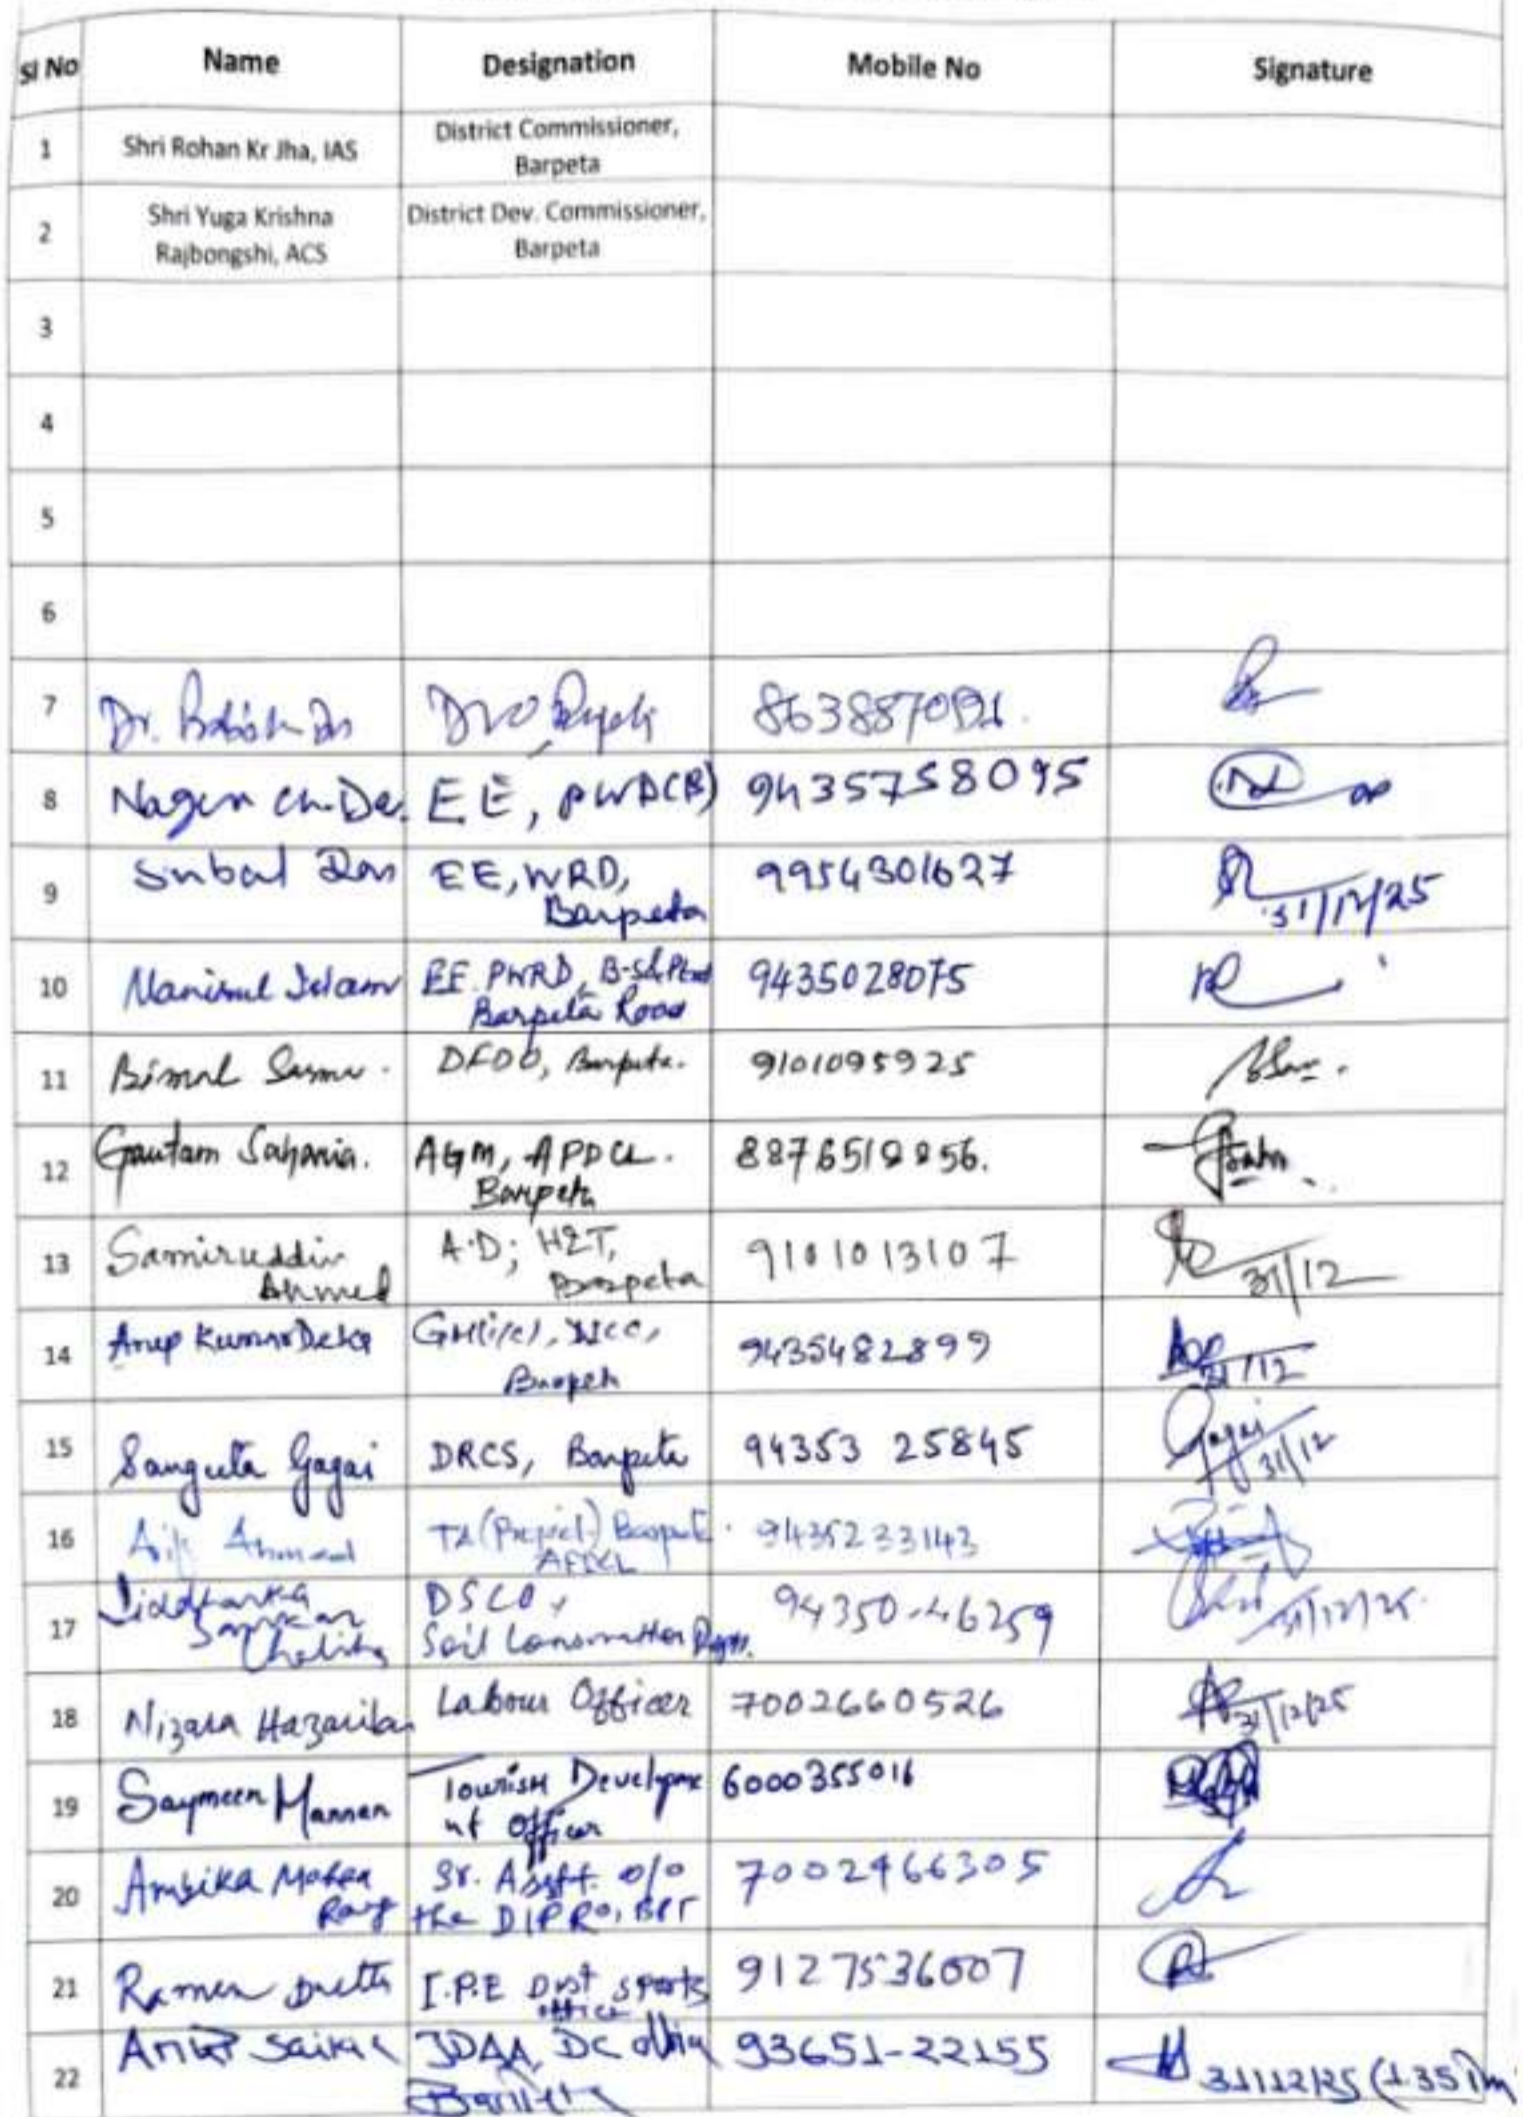 Sl No Name Designation Mobile No Signature
1 Shri Rohan Kr Jha, IAS District Commissioner,
Barpeta
2 Shri Yuga Krishna
Rajbongshi, ACS District Dev. Commissioner,
Barpeta
3
4
5
6
7 Dr. Das DVO
8 Nagen Ch. EE, PWD(B) 9435758095
9 Subal Das EE, WRD,
Barpeta 9954301627 31/12/25
10 Islam EE PWRD,
Barpeta Road 9435028075
11 Bimal Sarma. Barpeta. 9101095925
12 Gautam Saharia. AGM, APDCL.
Barpeta
13 Samiruddin
Ahmed A.D; H&T,
Barpeta 9101013107 31/12
14 Anup Kumar Deka GM(i/c),
Barpeta 9435482899 31/12
15 Sangeeta Gogoi DRCS, Barpeta 94353 25845 Gogoi
31/12
16 Ahmed Barpeta. 9435233143
17 Siddhartha
Sankar DSCO,
Soil 94350-46259 31/12/25
18 Nizara Hazarika Labour Officer 7002660526 31/12/25
19 Saymeen Mannan Tourism Developme
nt Officer 6000355016
20 Ambika Mohan
Sr. Asstt. o/o
the DIPRO, BPT 7002466305
21 Ramen Dutta I.P.E Dist Sports
Office 9127536007
22 Saikia DC
93651-22155 31/12/25 (1.35 Pm